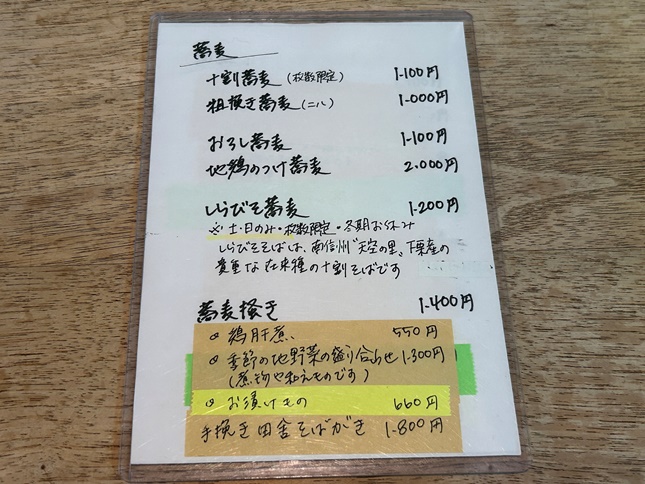 蕎麦
十割蕎麦(枚数限定) 1.100円
粗挽き蕎麦(二八) 1.000円
おろし蕎麦 1.100円
地鶏のつけ蕎麦 2.000円
しらびそ蕎麦 1.200円
※土・日のみ・枚数限定・冬期お休み
しらびそそばは、南信州〝天空の里〟下栗産の
貴重な在来種の十割そばです
蕎麦掻き 1.400円
◎ 鶏肝煮 550円
◎ 季節の地野菜の盛り合わせ 1.300円
(煮物や和えものです)
◎ お漬けもの 660円
手挽き田舎そばがき 1.800円